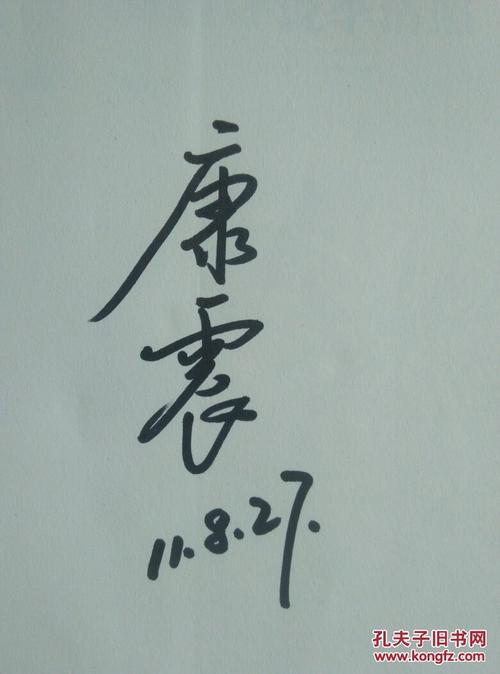 康震
11.8.27.
孔夫子旧书网
www.kongfz.com